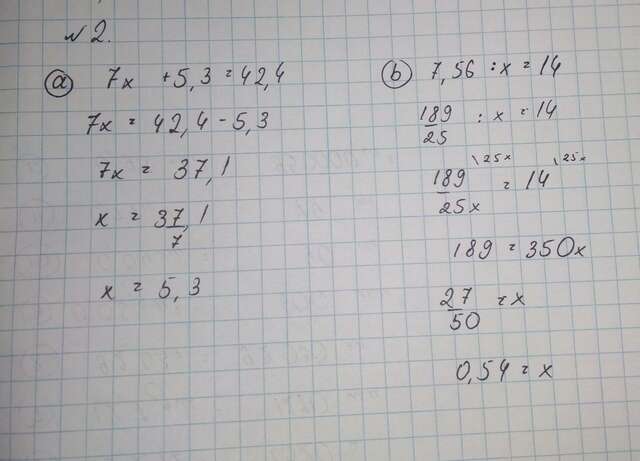 №2.
а) 7x + 5,3 = 42,4
7x = 42,4 - 5,3
7x = 37,1
x = 37,1/7
x = 5,3
b) 7,56 : x = 14
189/25 : x = 14
189/25x \25x = 14 \25x
189 = 350x
27/50 = x
0,54 = x